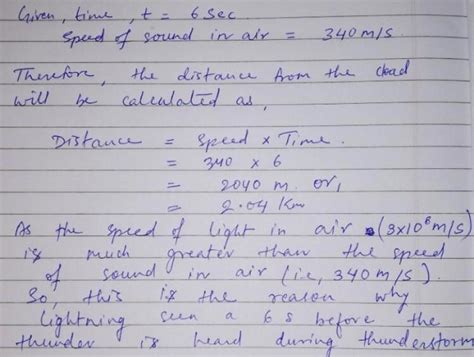 Given, time, t = 6 Sec
Speed of sound in air = 340 m/s.
Therefore, the distance from the cloud
will be calculated as,
Distance = Speed x Time.
= 340 x 6
= 2040 m. or,
= 2.04 Km
As the speed of light in air (3x10⁸ m/s)
is much greater than the speed
of sound in air (i.e, 340 m/s).
So, this is the reason why
lightning seen a 6 s before the
thunder is heard during thunderstorm